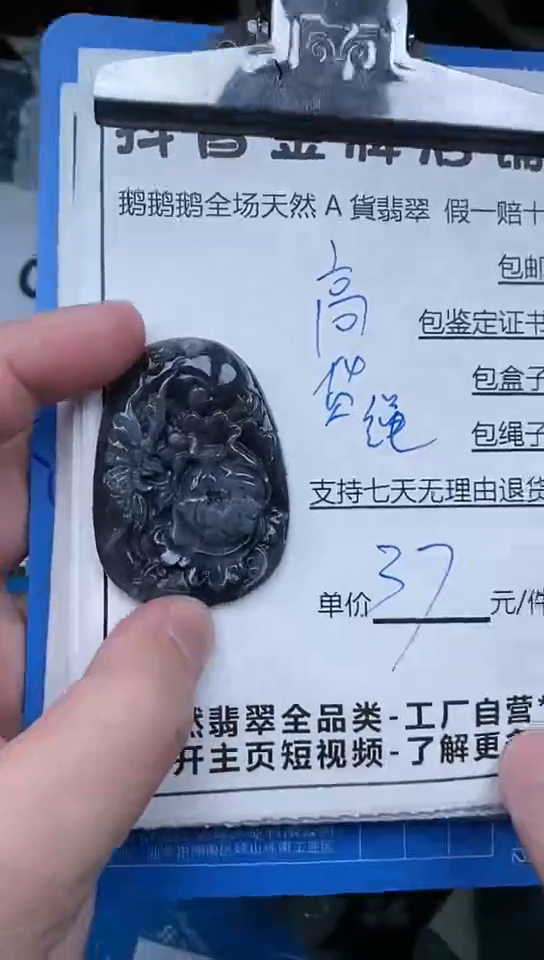 抖音金牌店铺
鹅鹅鹅全场天然A貨翡翠 假一赔十
高
货
绳
包邮
包鉴定证书
包盒子
包绳子
支持七天无理由退货
单价37元/件
然翡翠全品类-工厂自营*
开主页短视频-了解更多